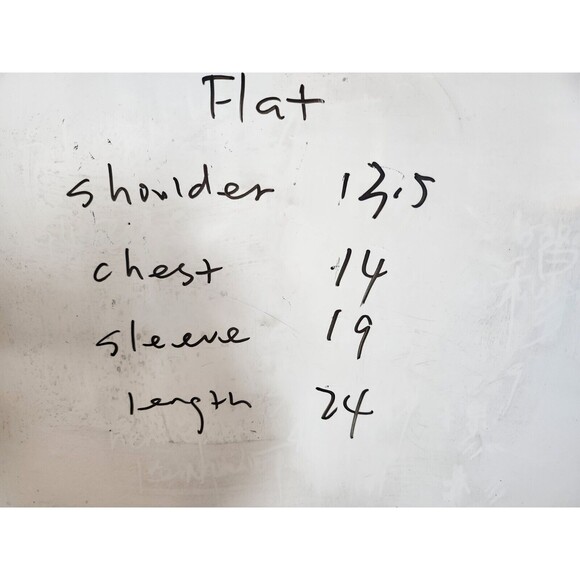 Flat
shoulder 13.5
chest 14
sleeve 19
length 24